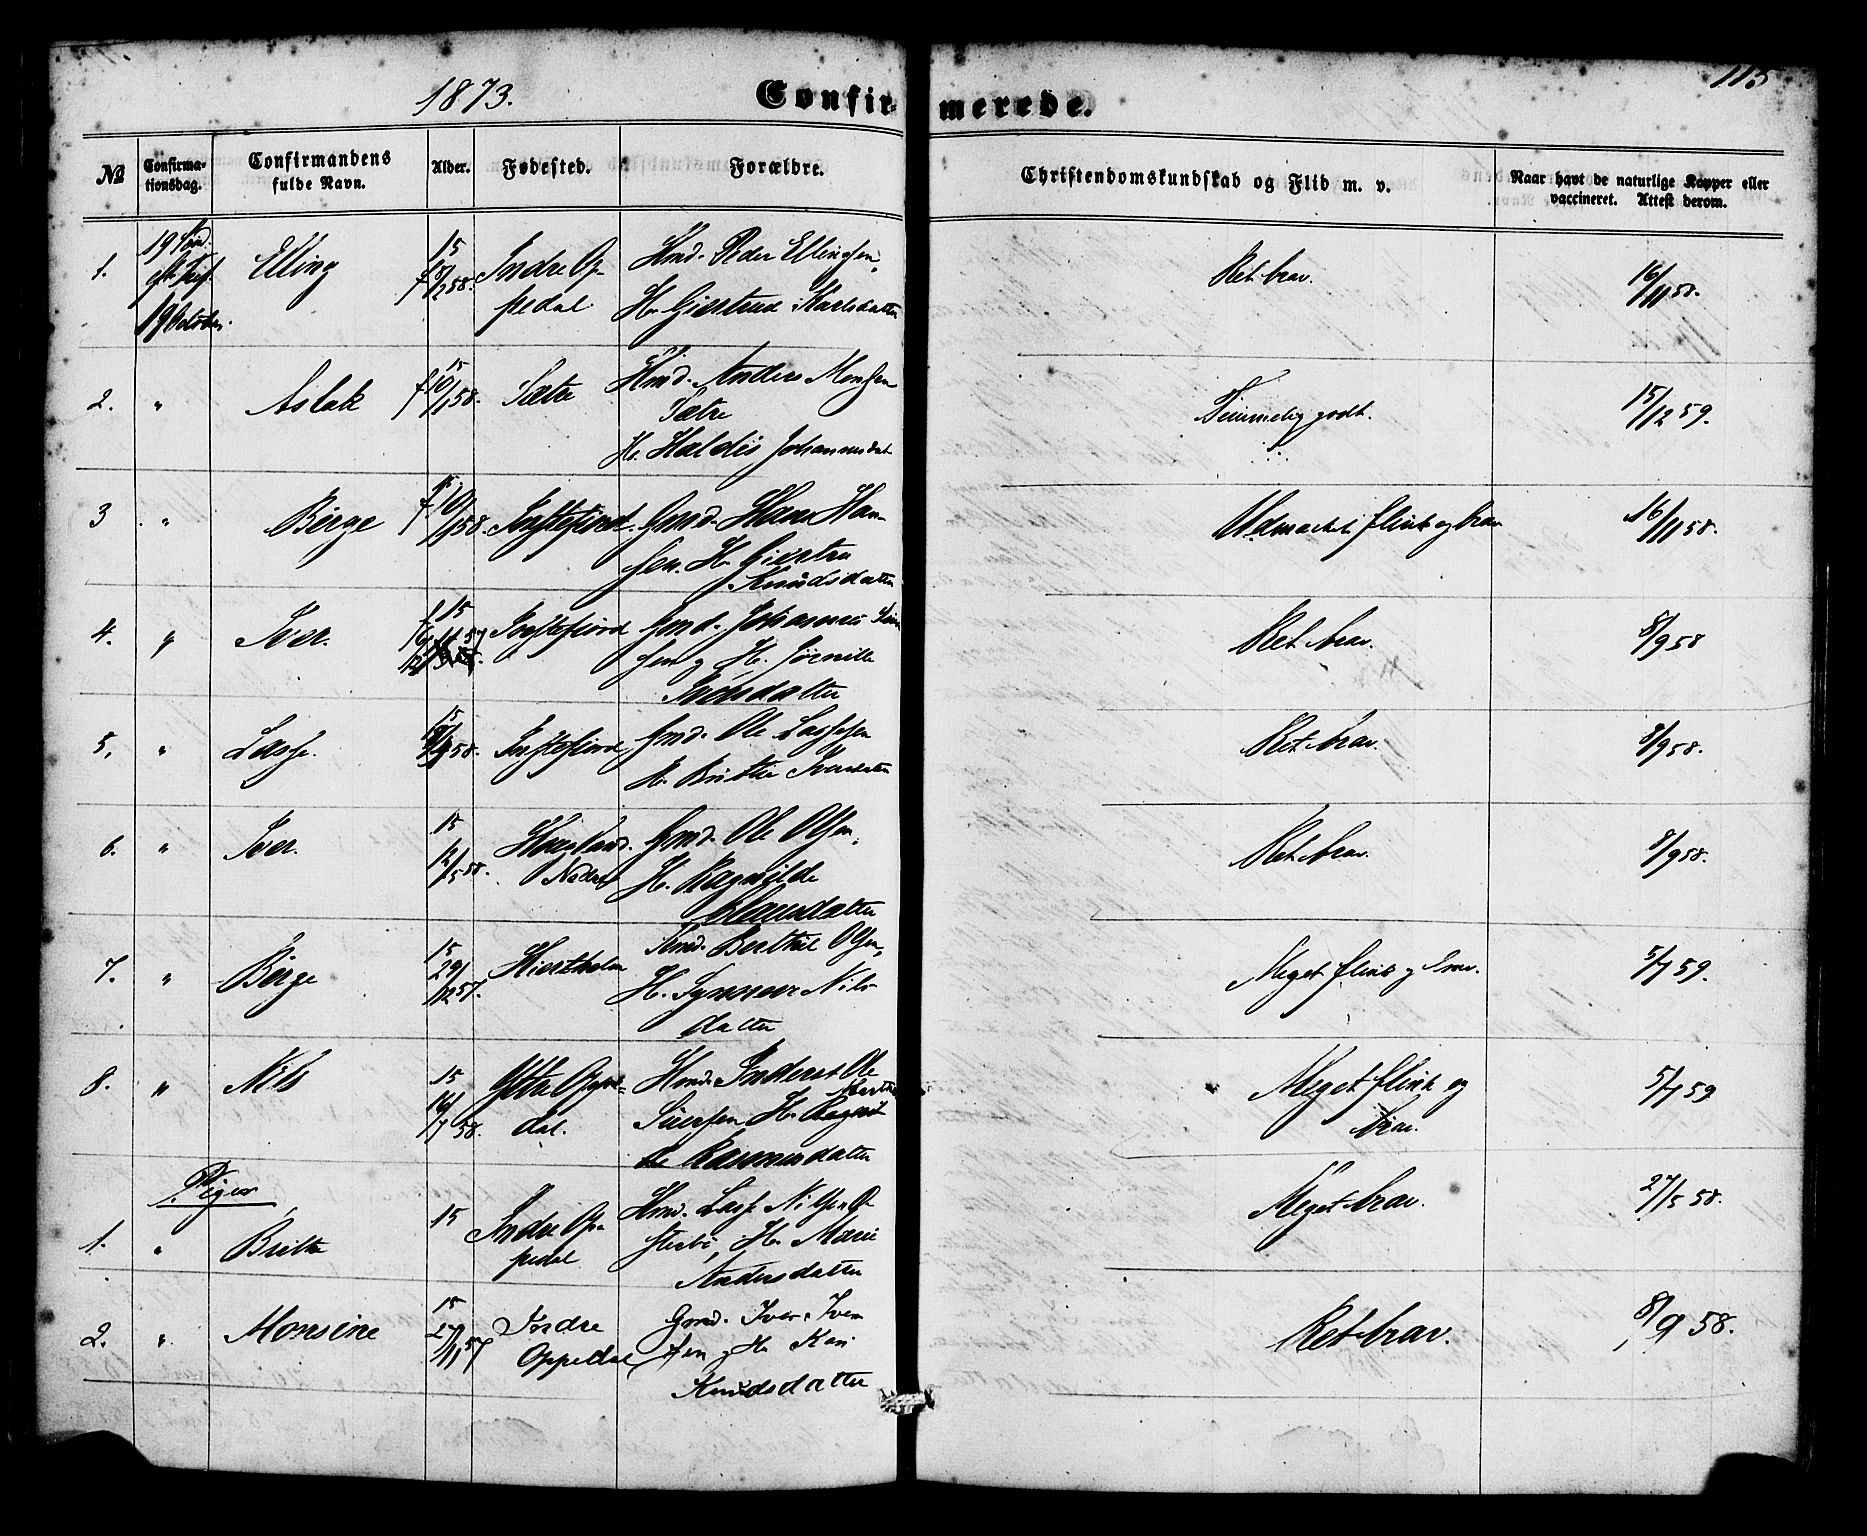 1873.
Confirmerede.
113
№
Confirmationsdag.
Confirmandens fulde Navn.
Alder.
Fødested.
Forældre.
Christendomskundskab og Flid m. v.
Naar havt de naturlige Kopper eller vaccineret. Attest derom.
1.
19 Octobr.
Elling
15
Indre Op
pedal
Hmd. Peder Ellingsen,
H. Giertrud Karlsdatter
Ret brav.
16/11 58.
2.
"
Aslak
15
Sætre
Hmd. Anders Monsen
Sætre
H. Haldis Johannesdat
Temmelig godt.
15/12 59.
3
"
Børge
Instefjord.
Gmd. Hans Han-
sen. H. Giertru
Knudsdatter
Udmærket flink og brav
16/11 58.
4.
"
Iver.
15
Gmd. Johannes
sen og H.
Ret brav.
8/9 58
5.
"
Lasse.
15
Instefiord
Gmd. Ole Lassesen
H. Britha Iversdatter
Ret brav.
8/9 58.
6.
"
Iver.
15
12/5 58.
Gmd. Ole Olsen,
H. Ragnilde
Ret brav.
8/9 58.
7.
"
Børge
15
29/12 57.
Hiertholm
Bertel Olsen,
H. Synneve Nils
datter
Meget flink og brav.
5/7 59.
8.
"
Nils
15
16/7 58.
Ytre Oppe-
dal.
Hmd. Ole
Rasmusdatter
Meget flink og
brav.
5/7 59
Piger
1.
"
Britha
15
Indre Op
pedal
Hmd. Lasse Nilsen
H. Marie
Andersdatter
Meget brav.
27/5 58.
2.
"
Monsine
15
27/11 57
Indre
Oppedal
Gmd. Iver Iver
sen og H. Kari
Knudsdatter
Ret brav.
8/9 58.